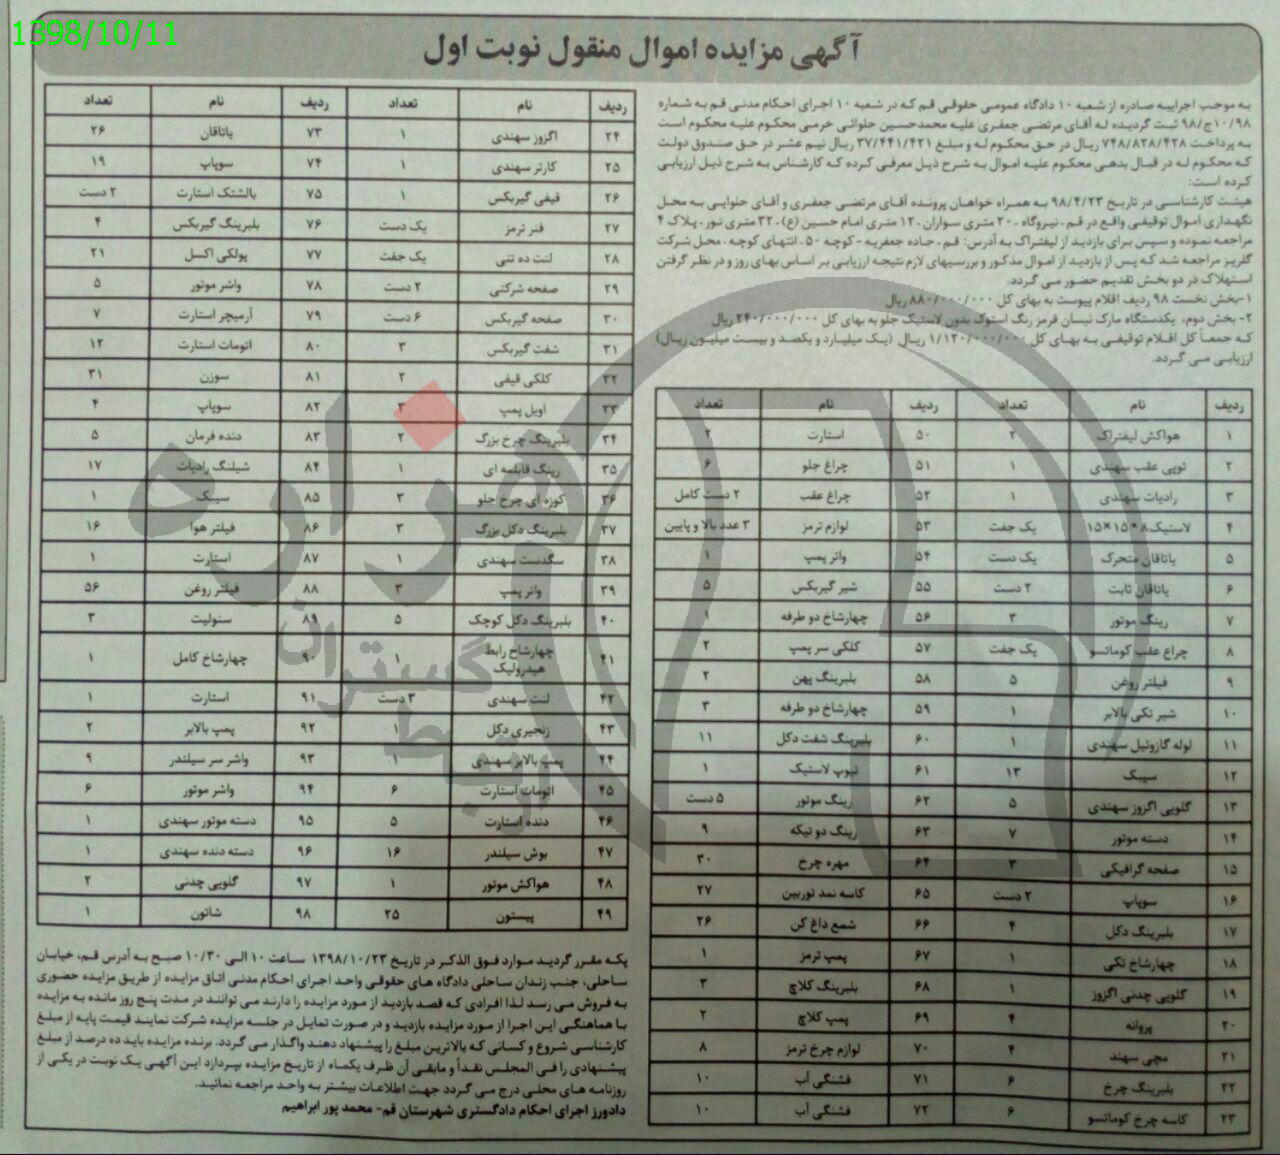 1398/10/11
آگهی مزایده اموال منقول نوبت اول
به موجب اجراییه صادره از شعبه ۱۰ دادگاه عمومی حقوقی قم که در شعبه ۱۰ اجرای احکام مدنی قم به شماره
۱۰/۹۸ج/۹۸ ثبت گردیده له آقای مرتضی جعفری علیه محمدحسین حلوائی خرمی محکوم علیه محکوم است
به پرداخت ۷۴۸/۸۲۸/۴۲۸ ریال در حق محکوم له و مبلغ ۳۷/۴۴۱/۴۲۱ ریال نیم عشر در حق صندوق دولت
که محکوم له در قبال بدهی محکوم علیه اموال به شرح ذیل معرفی کرده که کارشناس به شرح ذیل ارزیابی
کرده است:
هیئت کارشناسی در تاریخ ۹۸/۴/۲۳ به همراه خواهان پرونده آقای مرتضی جعفری و آقای حلوایی به محل
نگهداری اموال توقیفی واقع در قم ـ نیروگاه ـ ۲۰ متری سواران ـ ۱۲ متری امام حسین (ع) ـ ۳۲ متری نور ـ پلاک ۴
مراجعه نموده و سپس برای بازدید از لیفتراک به آدرس: قم ـ جاده جعفریه ـ کوچه ۵۰ ـ انتهای کوچه ـ محل شرکت
گلریز مراجعه شد که پس از بازدید از اموال مذکور و بررسیهای لازم نتیجه ارزیابی بر اساس بهای روز و در نظر گرفتن
استهلاک در دو بخش تقدیم حضور می گردد.
۱-بخش نخست ۹۸ ردیف اقلام پیوست به بهای کل ۸۸۰/۰۰۰/۰۰۰ ریال
۲- بخش دوم، یکدستگاه مارک نیسان قرمز رنگ استوک بدون لاستیک جلو به بهای کل ۲۴۰/۰۰۰/۰۰۰ ریال
که جمعاً کل اقلام توقیفی به بهای کل ۱/۱۲۰/۰۰۰/۰۰۰ ریال (یک میلیارد و یکصد و بیست میلیون ریال)
ارزیابی می گردد.
ردیف نام تعداد ردیف نام تعداد
۱ هواکش لیفتراک ۲ ۵۰ استارت ۲
۲ توپی عقب سهندی ۱ ۵۱ چراغ جلو ۶
۳ رادیات سهندی ۱ ۵۲ چراغ عقب ۲ دست کامل
۴ لاستیک ۸*۱۵×۱۵ یک جفت ۵۳ لوازم ترمز ۳ عدد بالا و پایین
۵ یاتاقان متحرک یک دست ۵۴ واتر پمپ ۱
۶ یاتاقان ثابت ۲ دست ۵۵ شیر گیربکس ۵
۷ رینگ موتور ۳ ۵۶ چهارشاخ دو طرفه ۱
۸ چراغ عقب کوماتسو یک جفت ۵۷ کلکی سر پمپ ۲
۹ فیلتر روغن ۵ ۵۸ بلبرینگ پهن ۲
۱۰ شیر تکی بالابر ۱ ۵۹ چهارشاخ دو طرفه ۳
۱۱ لوله گازوئیل سهندی ۱ ۶۰ بلبرینگ شفت دکل ۱۱
۱۲ سیبک ۱۳ ۶۱ تیوپ لاستیک ۱
۱۳ گلویی اگزوز سهندی ۵ ۶۲ رینگ موتور ۵ دست
۱۴ دسته موتور ۷ ۶۳ رینگ دو تیکه ۹
۱۵ صفحه گرافیکی ۳ ۶۴ مهره چرخ ۳۰
۱۶ سوپاپ ۲ دست ۶۵ کاسه نمد توربین ۲۷
۱۷ بلبرینگ دکل ۴ ۶۶ شمع داغ کن ۲۶
۱۸ چهارشاخ تکی ۱ ۶۷ پمپ ترمز ۱
۱۹ گلویی چدنی اگزوز ۱ ۶۸ بلبرینگ کلاچ ۳
۲۰ پروانه ۴ ۶۹ پمپ کلاچ ۲
۲۱ مچی سهند ۴ ۷۰ لوازم چرخ ترمز ۸
۲۲ بلبرینگ چرخ ۶ ۷۱ فشنگی آب ۱۰
۲۳ کاسه چرخ کوماتسو ۶ ۷۲ فشنگی آب ۱۰
ردیف نام تعداد ردیف نام تعداد
۲۴ اگزوز سهندی ۱ ۷۳ یاتاقان ۲۶
۲۵ کارتر سهندی ۱ ۷۴ سوپاپ ۱۹
۲۶ قیفی گیربکس ۱ ۷۵ بالشتک استارت ۲ دست
۲۷ فنر ترمز یک دست ۷۶ بلبرینگ گیربکس ۴
۲۸ لنت ده تنی یک جفت ۷۷ پولکی اکسل ۲۱
۲۹ صفحه شرکتی ۲ دست ۷۸ واشر موتور ۵
۳۰ صفحه گیربکس ۶ دست ۷۹ آرمیچر استارت ۷
۳۱ شفت گیربکس ۳ ۸۰ اتومات استارت ۱۲
۳۲ کلکی قیفی ۲ ۸۱ سوزن ۳۱
۳۳ اویل پمپ ۳ ۸۲ سوپاپ ۴
۳۴ بلبرینگ چرخ بزرگ ۲ ۸۳ دنده فرمان ۵
۳۵ رینگ قابلمه ای ۱ ۸۴ شیلنگ رادیات ۱۷
۳۶ کوزه ای چرخ جلو ۳ ۸۵ سیبک ۱
۳۷ بلبرینگ دکل بزرگ ۳ ۸۶ فیلتر هوا ۱۶
۳۸ سگدست سهندی ۱ ۸۷ استارت ۱
۳۹ واتر پمپ ۳ ۸۸ فیلتر روغن ۵۶
۴۰ بلبرینگ دکل کوچک ۵ ۸۹ سنولیت ۳
۴۱ چهارشاخ رابط هیدرولیک ۱ ۹۰ چهارشاخ کامل ۱
۴۲ لنت سهندی ۳ دست ۹۱ استارت ۱
۴۳ زنجیری دکل ۱ ۹۲ پمپ بالابر ۲
۴۴ پمپ بالابر سهندی ۱ ۹۳ واشر سر سیلندر ۹
۴۵ اتومات استارت ۶ ۹۴ واشر موتور ۶
۴۶ دنده استارت ۵ ۹۵ دسته موتور سهندی ۱
۴۷ بوش سیلندر ۱۶ ۹۶ دسته دنده سهندی ۱
۴۸ هواکش موتور ۱ ۹۷ گلویی چدنی ۲
۴۹ پیستون ۲۵ ۹۸ شاتون ۱
یکه مقرر گردید موارد فوق الذکر در تاریخ ۱۳۹۸/۱۰/۲۳ ساعت ۱۰ الی ۱۰/۳۰ صبح به آدرس قم، خیابان
ساحلی، جنب زندان ساحلی دادگاه های حقوقی واحد اجرای احکام مدنی اتاق مزایده از طریق مزایده حضوری
به فروش می رسد لذا افرادی که قصد بازدید از مورد مزایده را دارند می توانند در مدت پنج روز مانده به مزایده
با هماهنگی این اجرا از مورد مزایده بازدید و در صورت تمایل در جلسه مزایده شرکت نمایند قیمت پایه از مبلغ
کارشناسی شروع و کسانی که بالاترین مبلغ را پیشنهاد دهند واگذار می گردد. برنده مزایده باید ده درصد از مبلغ
پیشنهادی را فی المجلس نقداً و مابقی آن ظرف یکماه از تاریخ مزایده بپردازد این آگهی یک نوبت در یکی از
روزنامه های محلی درج می گردد جهت اطلاعات بیشتر به واحد مراجعه نمائید.
دادورز اجرای احکام دادگستری شهرستان قم- محمد پور ابراهیم